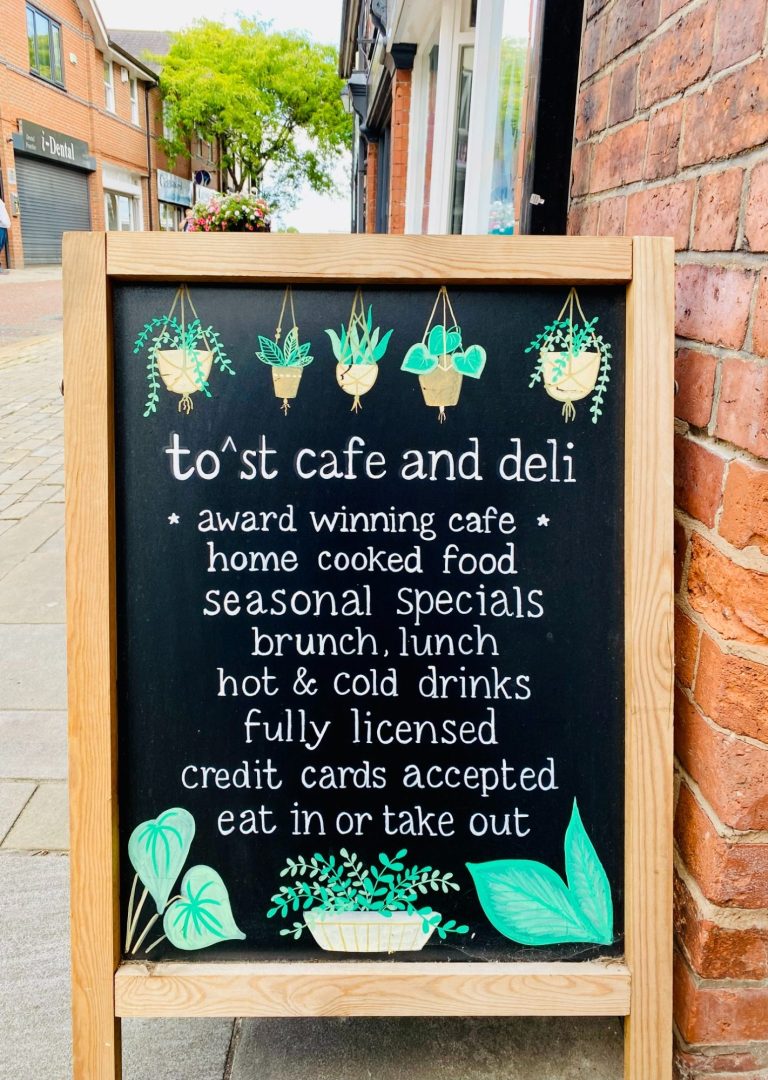 i-Dental
to^st cafe and deli
* award winning cafe *
home cooked food
seasonal specials
brunch, lunch
hot & cold drinks
fully licensed
credit cards accepted
eat in or take out